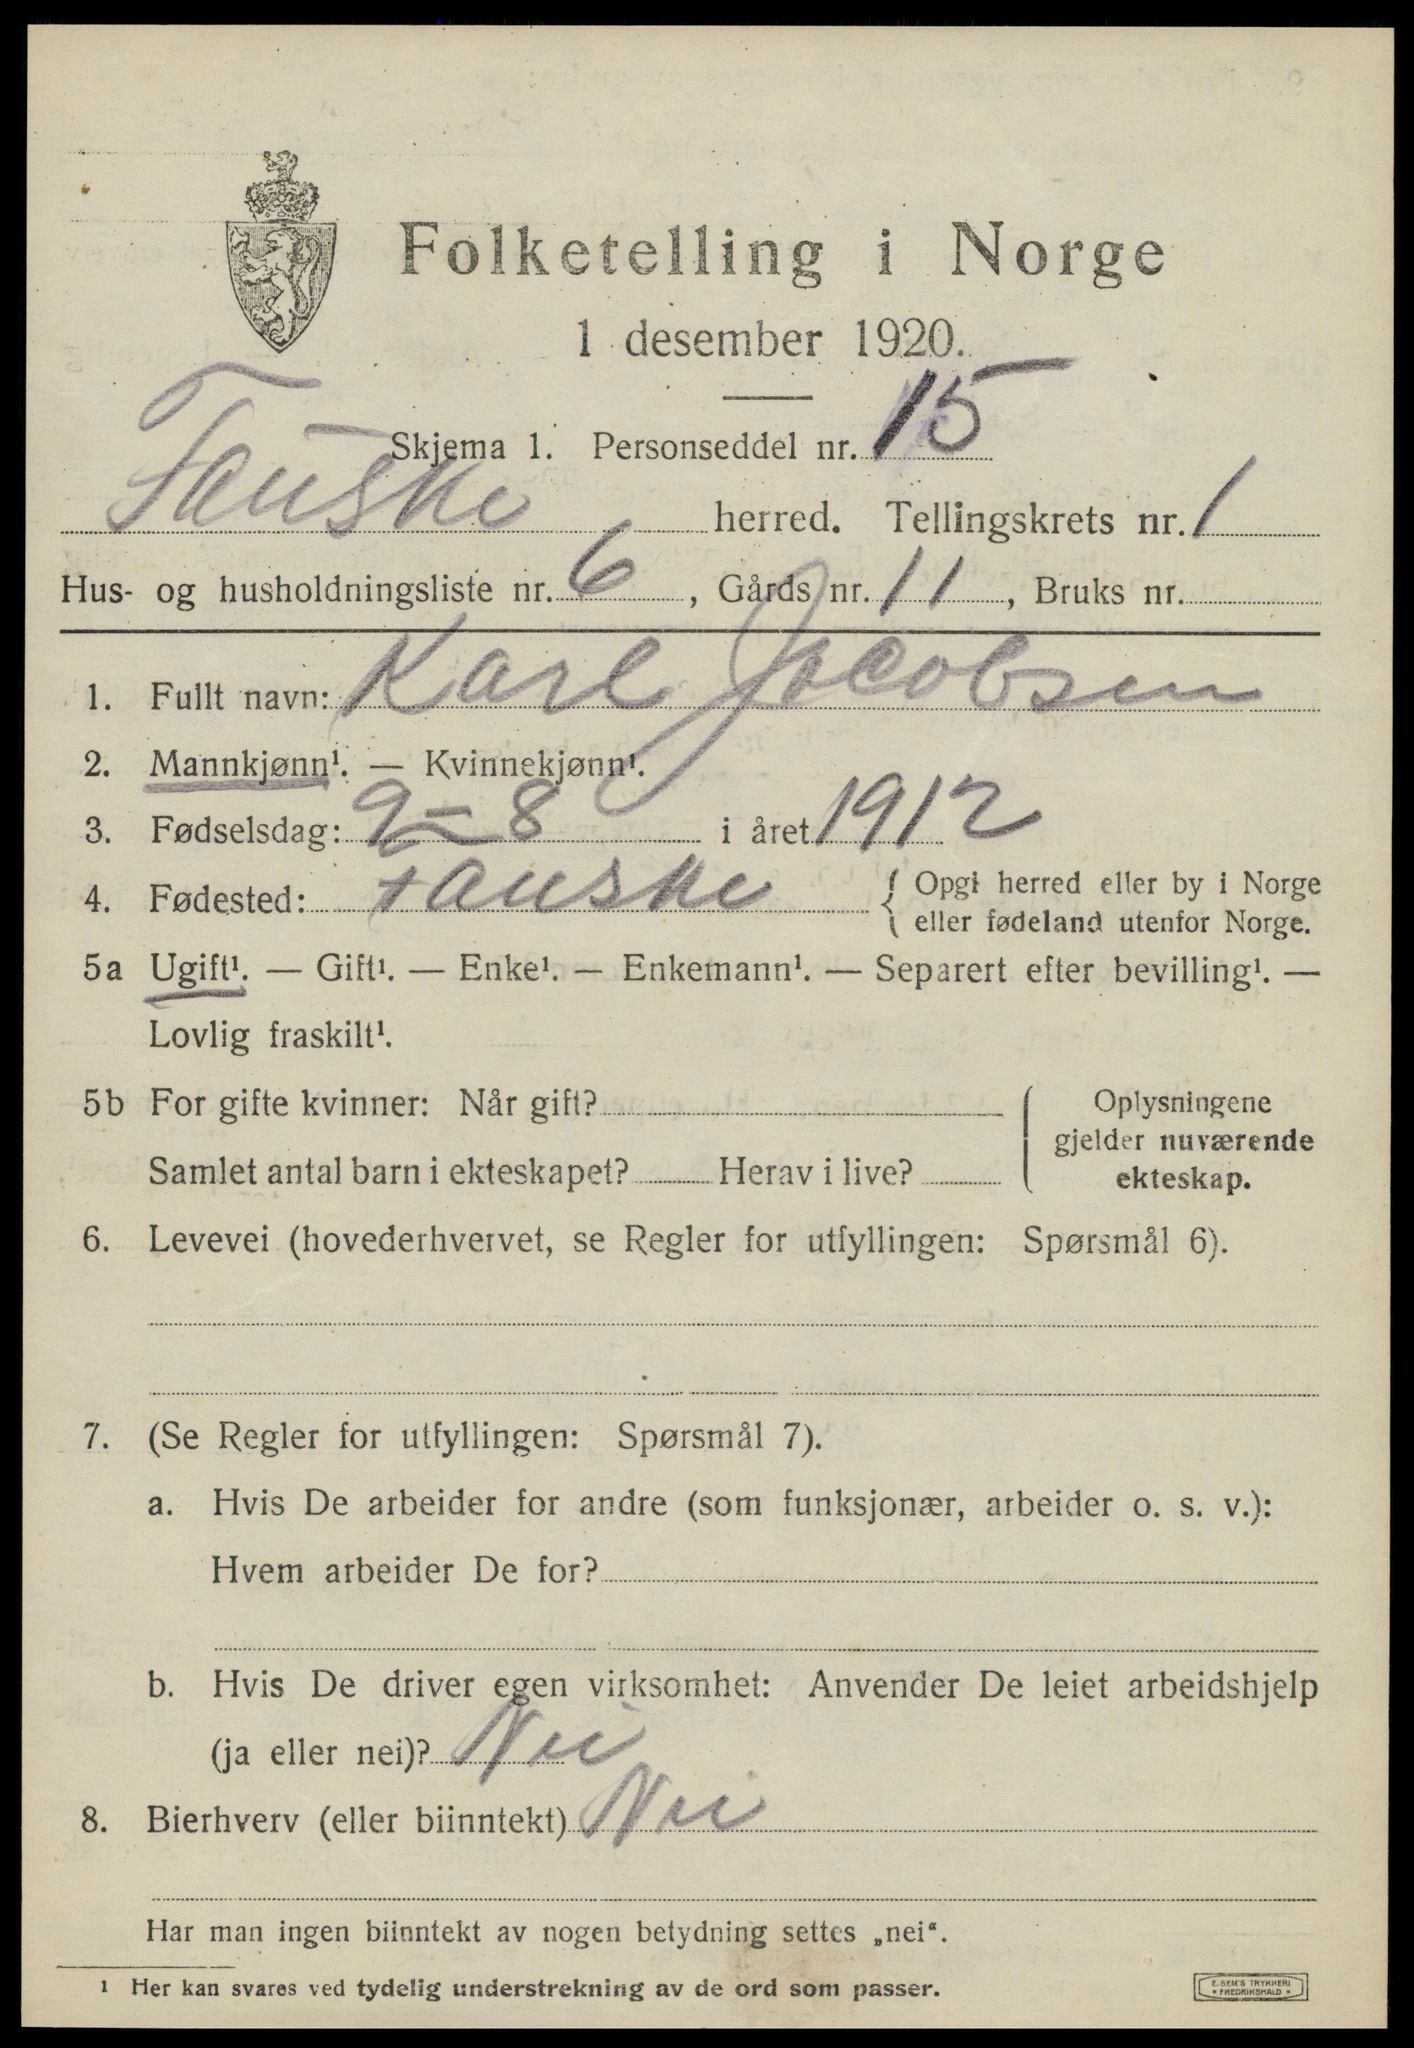 Folketelling i Norge
1 desember 1920.
Skjema 1. Personseddel nr. 15
Fauske herred. Tellingskrets nr. 1
Hus- og husholdningsliste nr. 6, Gårds nr. 11, Bruks nr.
1. Fullt navn: Karl Jacobsen
2. Mannkjønn¹. — Kvinnekjønn¹.
3. Fødselsdag: 9-8 i året 1912
4. Fødested: Fauske { Opgi herred eller by i Norge
eller fødeland utenfor Norge.
5a Ugift¹. — Gift¹. — Enke¹. — Enkemann¹. — Separert efter bevilling¹. —
Lovlig fraskilt¹.
5b For gifte kvinner: Når gift?
Samlet antal barn i ekteskapet? Herav i live?
Oplysningene
gjelder nuværende
ekteskap.
6. Levevei (hovederhvervet, se Regler for utfyllingen: Spørsmål 6).
7. (Se Regler for utfyllingen: Spørsmål 7).
a. Hvis De arbeider for andre (som funksjonær, arbeider o. s. v.):
Hvem arbeider De for?
b. Hvis De driver egen virksomhet: Anvender De leiet arbeidshjelp
(ja eller nei)? Nei
8. Bierhverv (eller biinntekt) Nei
Har man ingen biinntekt av nogen betydning settes „nei“.
1 Her kan svares ved tydelig understrekning av de ord som passer.
E. SEM'S TRYKKERI
FREDRIKSHALD